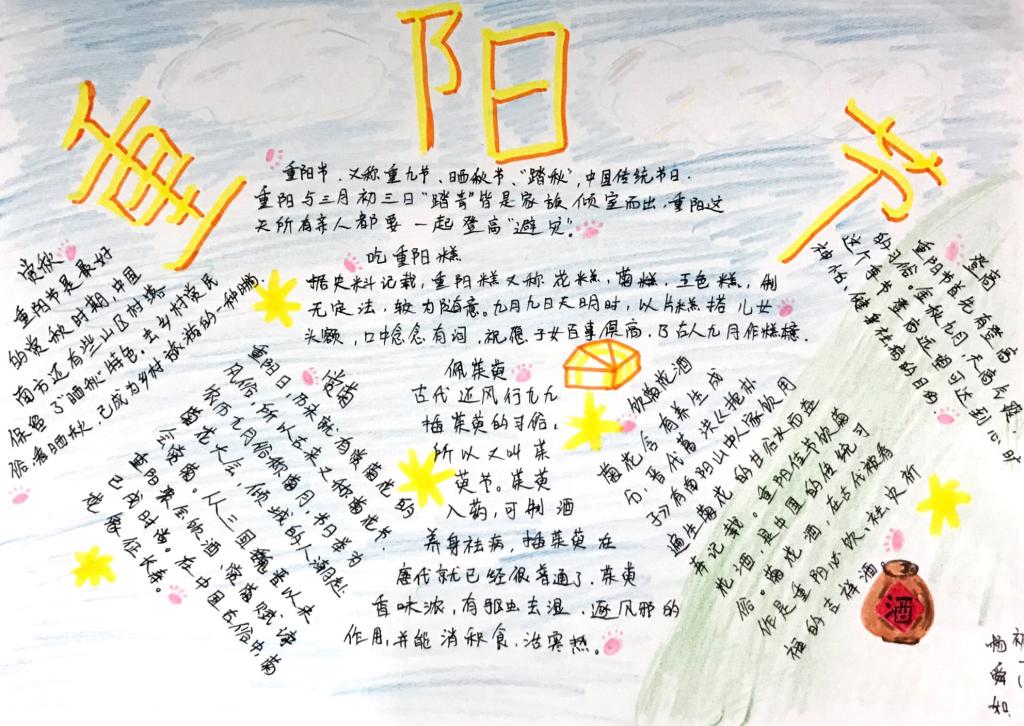 重阳节
重阳节、又称重九节、晒秋节、“踏秋”,中国传统节日.
重阳与三月初三日“踏青”皆是家族倾室而出,重阳这
天所有亲人都要一起登高“避灾”。
吃重阳糕
据史料记载,重阳糕又称花糕,菊糕,五色糕,制
无定法,较为随意。九月九日天明时,以片糕搭儿女
头额,口中念念有词,祝愿子女百事俱高,乃古人九月作糕
佩茱萸
古代还风行九九
插茱萸的习俗,
所以又叫茱
萸节。茱萸
入药,可制酒
养身祛病,插茱萸在
唐代就已经很普通了.茱萸
香味浓,有驱虫去湿、逐风邪的
作用,并能消积食,治寒热。
赏秋
重阳节是最好
的赏秋时期,中国
南方还有些山区村落
保留了“晒秋”特色.去乡村赏民
俗,看晒秋,已成为乡村旅游的一种时尚.
赏菊
重阳日,历来就有赏菊花的
风俗,所以古来又称菊花节.
农历九月俗称菊月,节日举办
菊花大会,倾城的人潮赴
会赏菊。从三国魏晋以来
重阳聚会饮酒、赏菊赋诗
已成时尚。在中国古俗中,菊
花象征长寿。
饮菊花酒
菊花含有养生成
分,晋代葛洪《抱朴
子》有南阳山中人家饮用
遍生菊花的甘谷水而益
寿记载。重阳佳节饮菊
花酒,是中国的传统习
俗。菊花酒,在古代被看
作是重阳必饮、祛灾祈
福的吉祥酒。
登高
重阳节首先有登高
的习俗。金秋九月,天高气爽
这个季节登高远望可达到心旷
神怡、健身祛病的目的.
酒
杨
舜
如
初